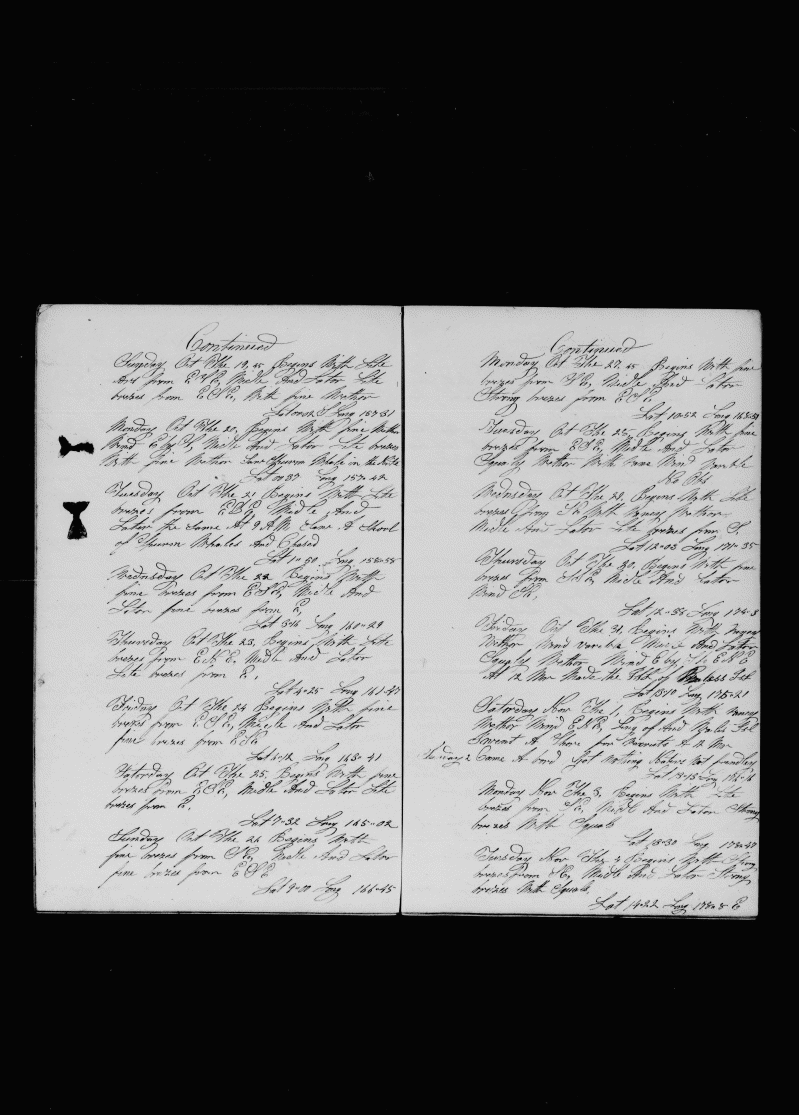 Continued
Sunday Oct The 19, 45 Begins With Lite
Airs from E.S.E, Midle And Lator Lite
brezes from E.S.E, With fine Wether
Long 157-31
Monday Oct The 20, Begins With fine Wether
Wind E by S, Midle And Lator Lite brezes
With fine Wether Saw Sperm Whale in the
Long 157-42
Tuesday Oct The 21 Begins With Lite
brezes from E.S.E, Midle And
Lator the Same At 9 A.M. Saw A Shool
of Sperm Whales And Chased
Lat 1-50 Long 158-58
Wednesday Oct The 22 Begins With
fine brezes from E.S.E, Midle And
Lator fine brezes from E,
Lat 3-16 Long 160-29
Thursday Oct The 23, Begins With Lite
brezes from E.N.E, Midle And Lator
Lite brezes from E.
Lat 4-25 Long 161-47
Friday Oct The 24 Beggins With fine
brezes from E.S.E, Midle And Lator
fine brezes from E.S.E
Lat 6-12 Long 163-41
Saturday Oct The 25, Begins With fine
brezes from E.S.E, Midle And Lator Lite
brezes from E.
Lat 7-32 Long 165-02
Sunday Oct The 26 Begins With
fine brezes from S.E, Midle And Lator
fine brezes from E.S.E
Lat 9-11 Long 166-45
Continued
Monday Oct The 27, 45 Begins With fine
brezes from S.E, Midle And Lator
Strong brezes from E.S.E.
Lat 10-52 Long 168-
Tuesday Oct The 28, Begins With fine
brezes from E.S.E, Midle And Lator
Squaly Wether With Wind Varible
No Obs
Wednesday Oct The 29, Begins With Lite
brezes from With Wether
Midle And Lator Lite brezes from S.
Lat 12-03 Long 171-35
Thursday Oct The 30, Begins With fine
brezes from Midle And Lator
Wind
Lat 12-36 Long 174-3
Friday Oct The 31, Begins With
Wether Wind varible Midle And Lator
Squaly Wether Wind E by S. to E.N.E
At 12 Mer Made the
Lat 13-10 Long 175-21
Saturday Nov The 1, Begins With
Wether Wind E.N.E, Lay of And
Sorcent A Shore for A 12 Mr
Sunday 2 Came A bord Got Nothing Natives Not frindley
Lat 13-15 Long 176-16
Monday Nov The 3, Begins With Lite
brezes from S.E, Midle And Lator Strong
brezes With Squals
Lat 13-30 Long 178-47
Tuesday Nov The 4 Begins With Strong
brezes from S.E, Midle And Lator Strong
brezes With Squals
Lat 14-22 Long 178-8 E